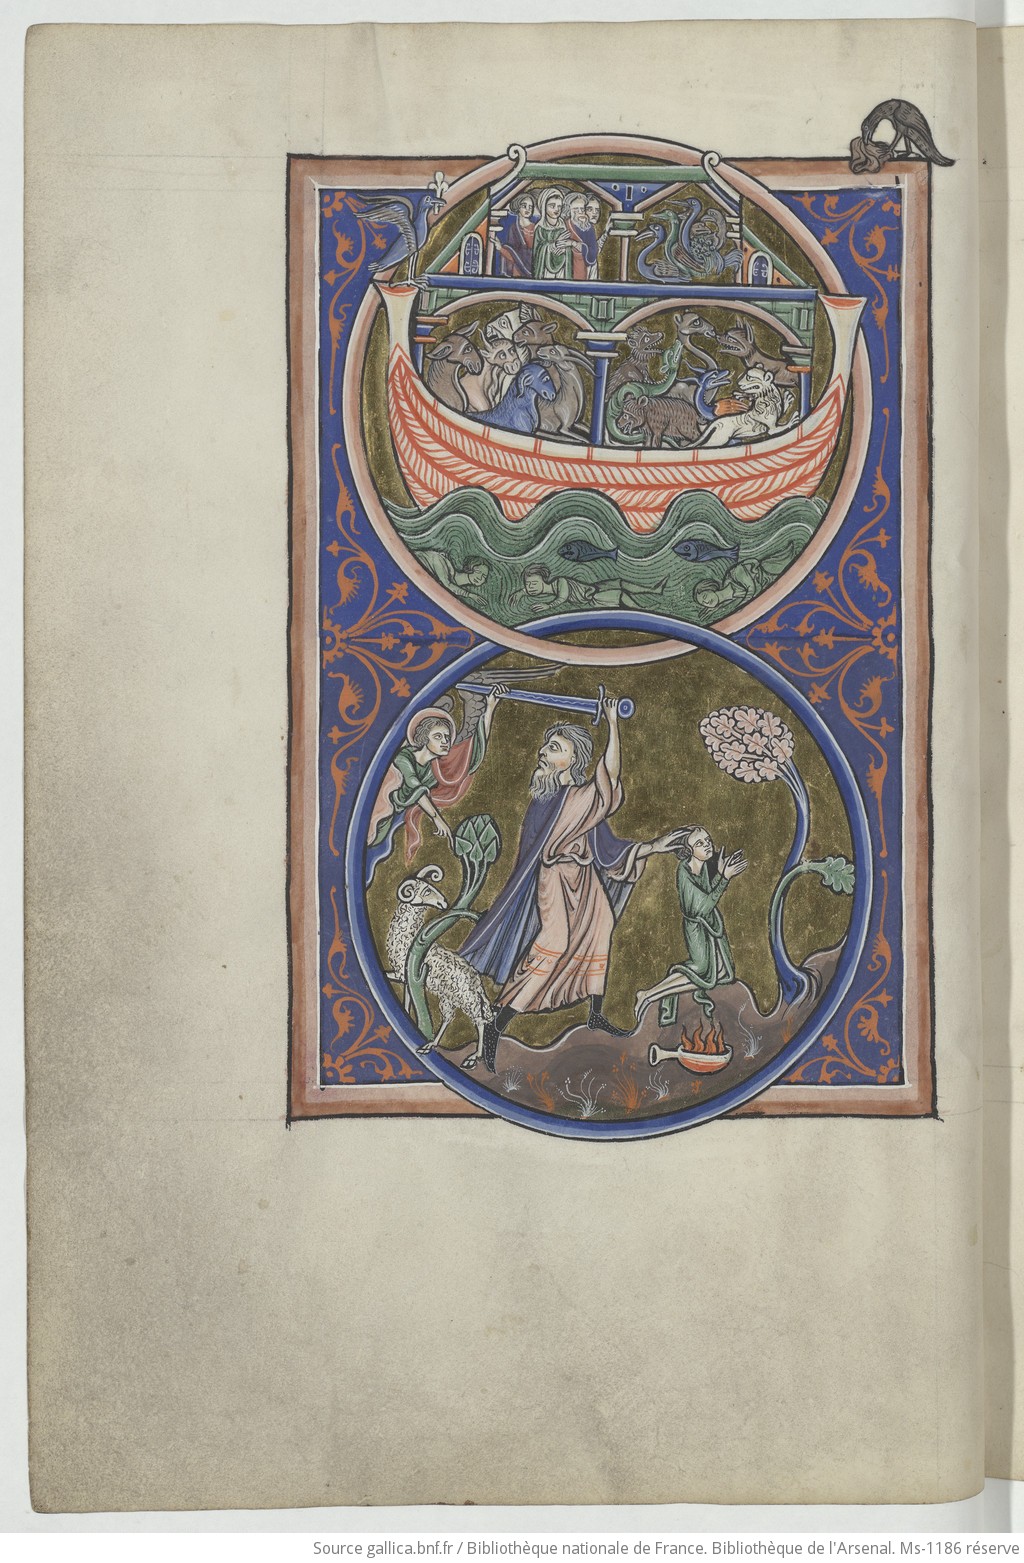 Source gallica.bnf.fr / Bibliothèque nationale de France. Bibliothèque de l'Arsenal. Ms-1186 réserve